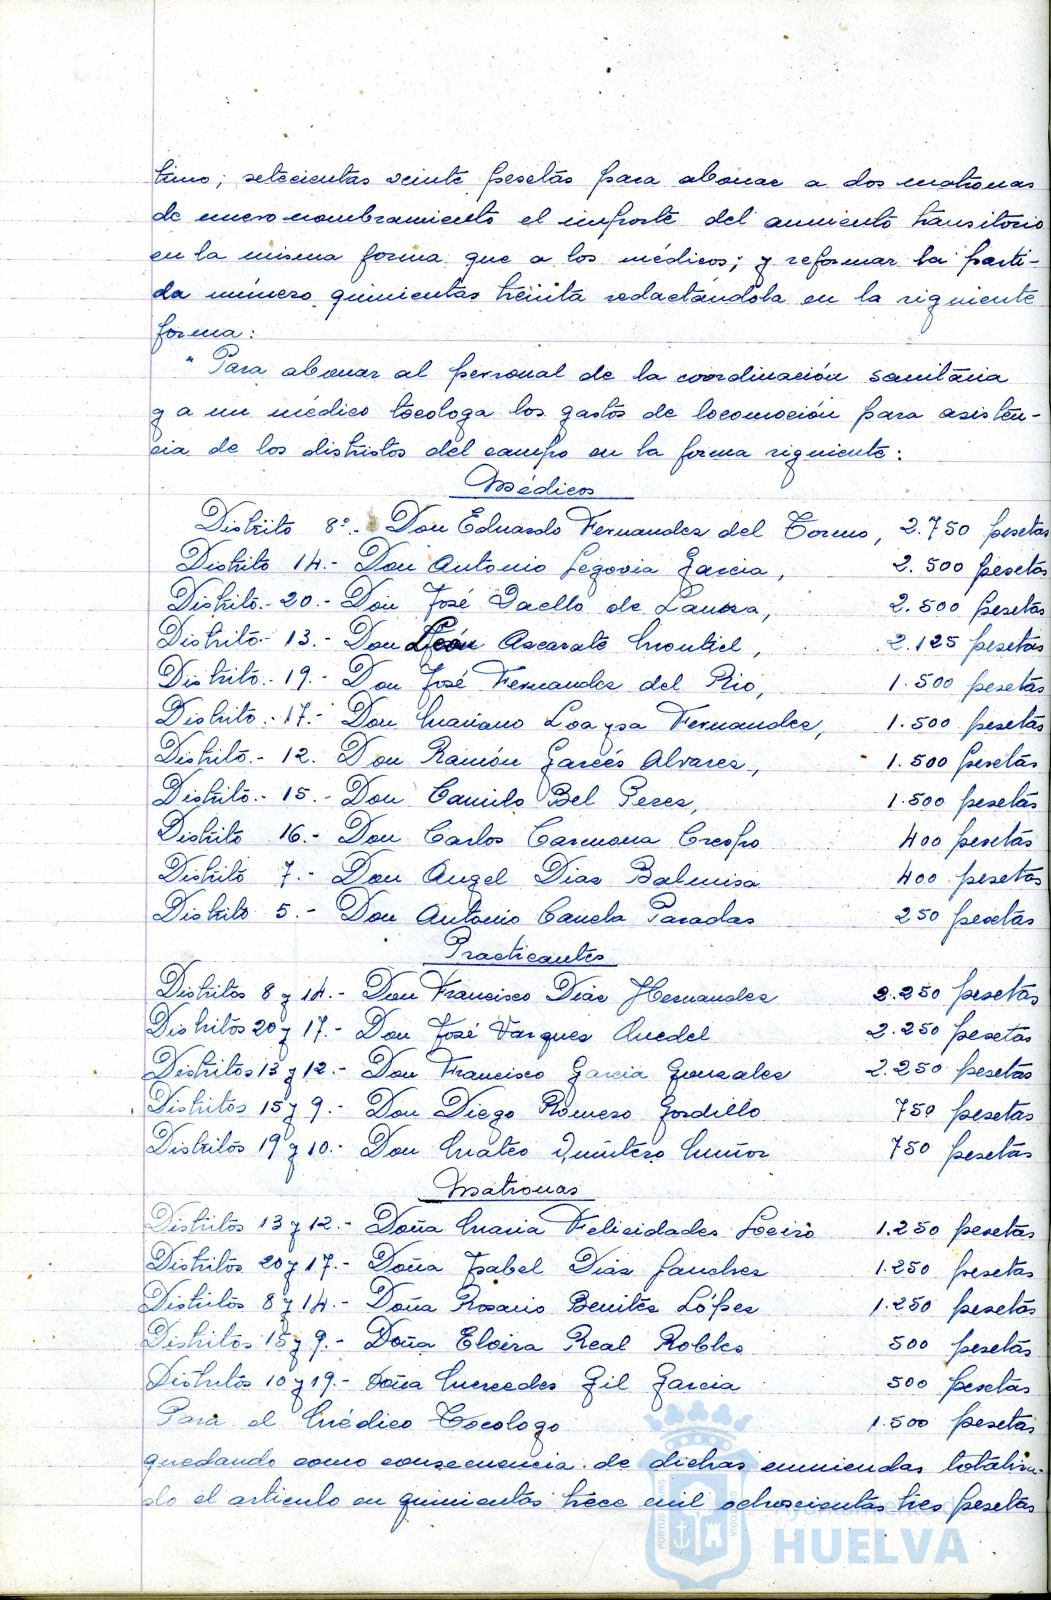 timo; setecientas veinte pesetas para abonar a dos matronas
de nuevo nombramiento el importe del aumento transitorio
en la misma forma que a los médicos; y reformar la parti-
da número quinientas treinta redactándola en la siguiente
forma:
" Para abonar al personal de la coordinación sanitaria
y a un médico tocologa los gastos de locomoción para asisten-
cia de los distritos del campo en la forma siguiente:
Médicos
Distrito 8º.- Don Eduardo Fernandez del Torno, 2.750 pesetas
Distrito 14.- Don Antonio Segovia Garcia, 2.500 pesetas
Distrito.- 20.- Don José de 2.500 pesetas
Distrito.- 13.- Don León Ascarate Montiel, 2.125 pesetas
Distrito.- 19.- Don José Fernandez del Rio, 1.500 pesetas
Distrito.- 17.- Don Mariano Loaysa Fernandez, 1.500 pesetas
Distrito.- 12. Don Ramón Garcés Alvarez, 1.500 pesetas
Distrito.- 15.- Don Camilo Bel Perez, 1.500 pesetas
Distrito 16.- Don Carlos Carmona Crespo 400 pesetas
Distrito 7.- Don Angel Dias 400 pesetas
Distrito 5.- Don Antonio Canela Paradas 250 pesetas
Practicantes
Distritos 8 y 14.- Don Francisco Dias Hernandez 2.250 pesetas
Distritos 20 y 17.- Don José Vazquez 2.250 pesetas
Distritos 13 y 12.- Don Francisco Garcia Gonzalez 2.250 pesetas
Distritos 15 y 9.- Don Diego Romero Gordillo 750 pesetas
Distritos 19 y 10.- Don Mateo Quintero Muñoz 750 pesetas
Matronas
Distritos 13 y 12.- Doña Maria Felicidades Loeiro 1.250 pesetas
Distritos 20 y 17.- Doña Isabel Dias Sanchez 1.250 pesetas
Distritos 8 y 14.- Doña Rosario Benites López 1.250 pesetas
Distritos 15 y 9.- Doña Elvira Real Robles 500 pesetas
Distritos 10 y 19.- Doña Mercedes Gil Garcia 500 pesetas
Para el Médico Tocologo 1.500 pesetas
quedando como consecuencia de dichas enmiendas totalizan-
do el articulo en quinientas trece mil ochoscientas tres pesetas
Ayuntamiento de
HUELVA